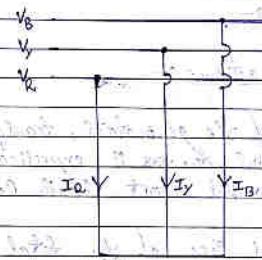 V_B
V_Y
V_R
I_R I_Y I_B